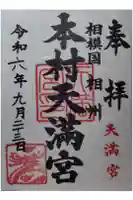 奉拝
相模国 相州
本村天満宮
天満宮
令和六年九月二十三日